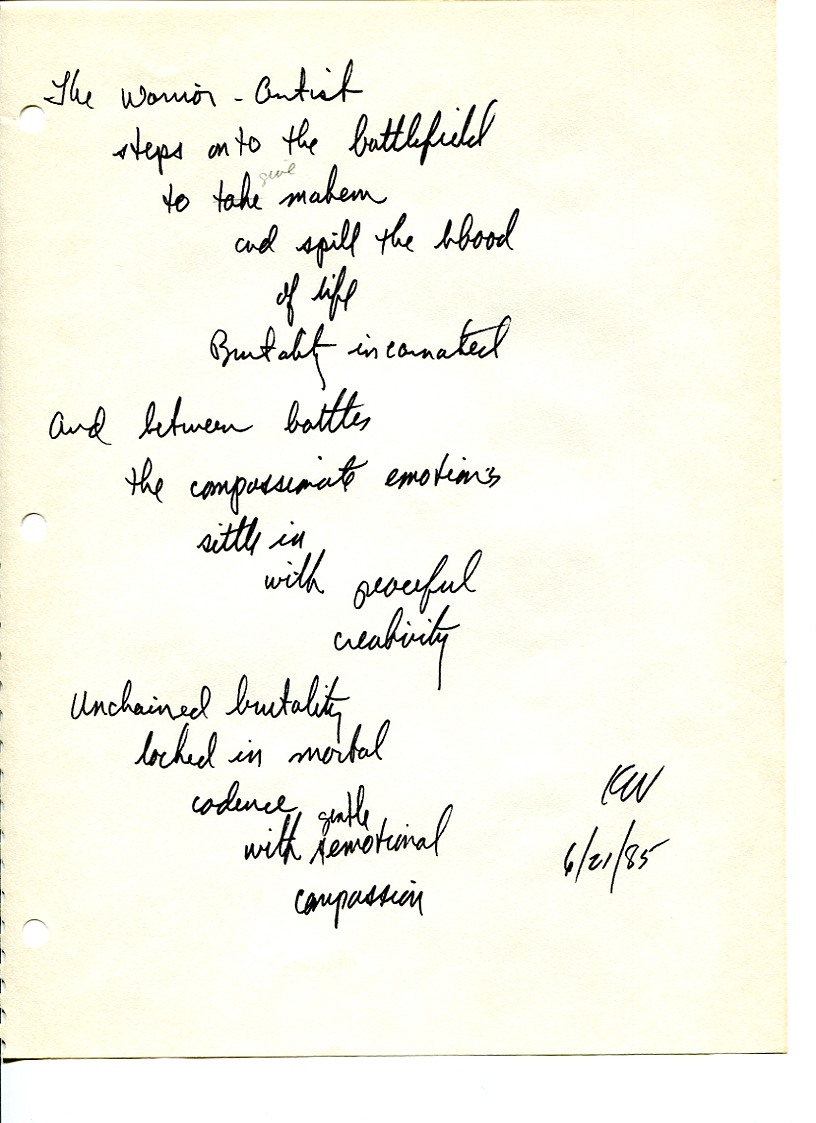 The Warrior - Artist
steps onto the battlefield
give
to take mahem
and spill the blood
of life
Brutality incarnated
And between battles
the compassionate emotions
settle in
with peaceful
creativity
Unchained brutality
locked in mortal
cadence
gentle
with emotional
compassion
KW
6/21/85